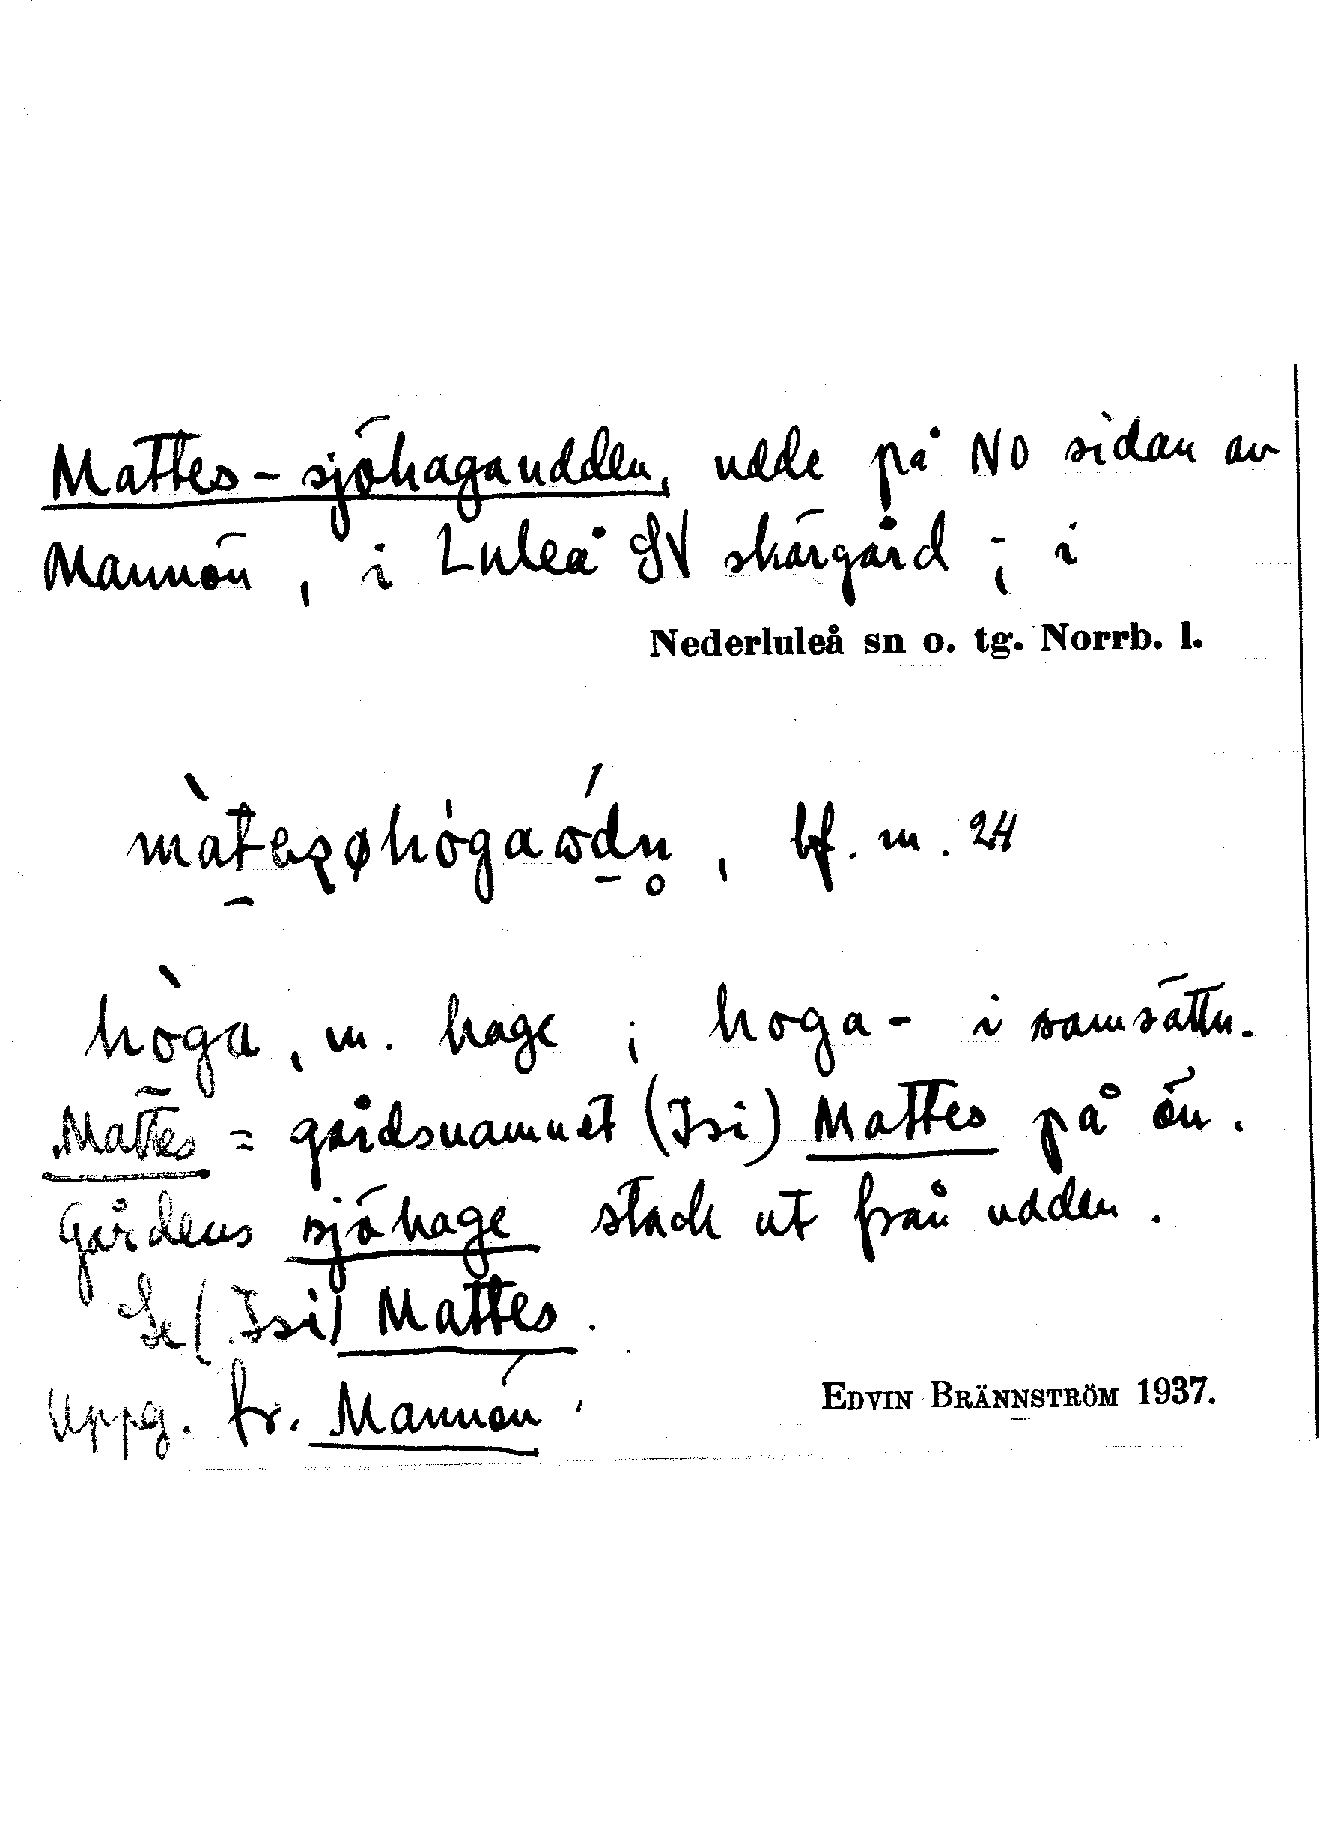 Mattes-sjöhagaudden, udde på NO sidan av
Mannön, i Luleå SV skärgård; i
Nederluleå sn o. tg. Norrb. l.
bf. m. 24
hòga, m. hage; hoga- i samsättn.
Mattes = gårdsnamnet (Isi) Mattes på ön.
Gårdens sjöhage stack ut från udden.
Se (Isi) Mattes.
Uppg. fr. Mannön.
EDVIN BRÄNNSTRÖM 1937.